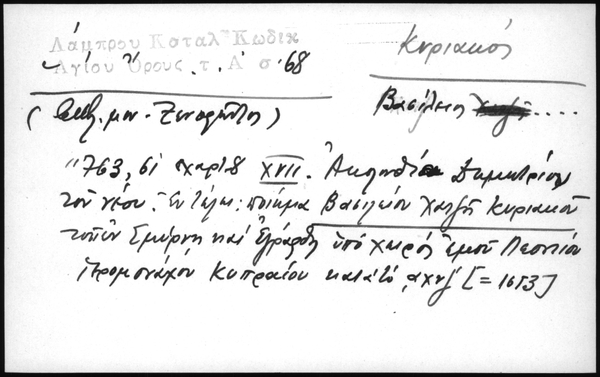 Λάμπρου Καταλ. Κωδικ
Αγίου Όρους. τ. Α' σ. 68
Κυριακός
(Βιβλ. μον. Ξενοφῶντος)
Βασίλειος ....
"763, 61 χαρτ. 8 XVII. Ἀκολουθία Δημητρίου
τοῦ νέου. Ἐν τέλει: ποίημα Βασιλείου Χατζῆ Κυριακοῦ
τοῦ ἐν Σμύρνῃ καὶ ἐγράφη ὑπὸ χειρός ἐμοῦ Λεοντίου
Ἱερομονάχου Κυπραίου κατὰ τὸ ,αχνγ' [= 1653]